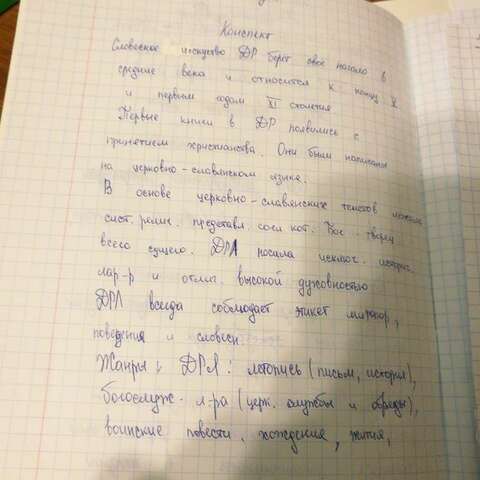 Конспект
Словесное искусство ДР берет свое начало в
средние века и относится к концу X
и первым годам XI столетия
Первые книги в ДР появились с
принятием христианства. Они были написаны
на церковно-славянском языке.
В основе церковно-славянских текстов лежала
сист. религ. представл. согл кот. Бог - творец
всего сущего. ДРЛ носила исключ. историч.
хар-р и отлич. высокой духовностью
ДРЛ всегда соблюдает этикет миропор,
поведения и словесн.
Жанры ДРЛ: летопись (письм, история),
богослуж- л-ра (церк. службы и обряды),
воинские повести, хождения, жития,